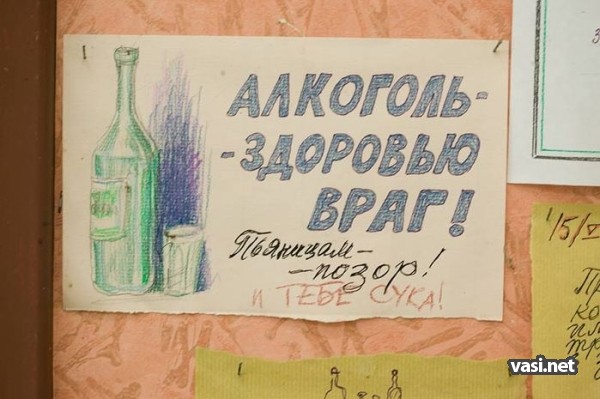 АЛКОГОЛЬ-
-ЗДОРОВЬЮ
ВРАГ!
Пьяницам-
-позор!
И ТЕБЕ СУКА!
15/V
vasi.net